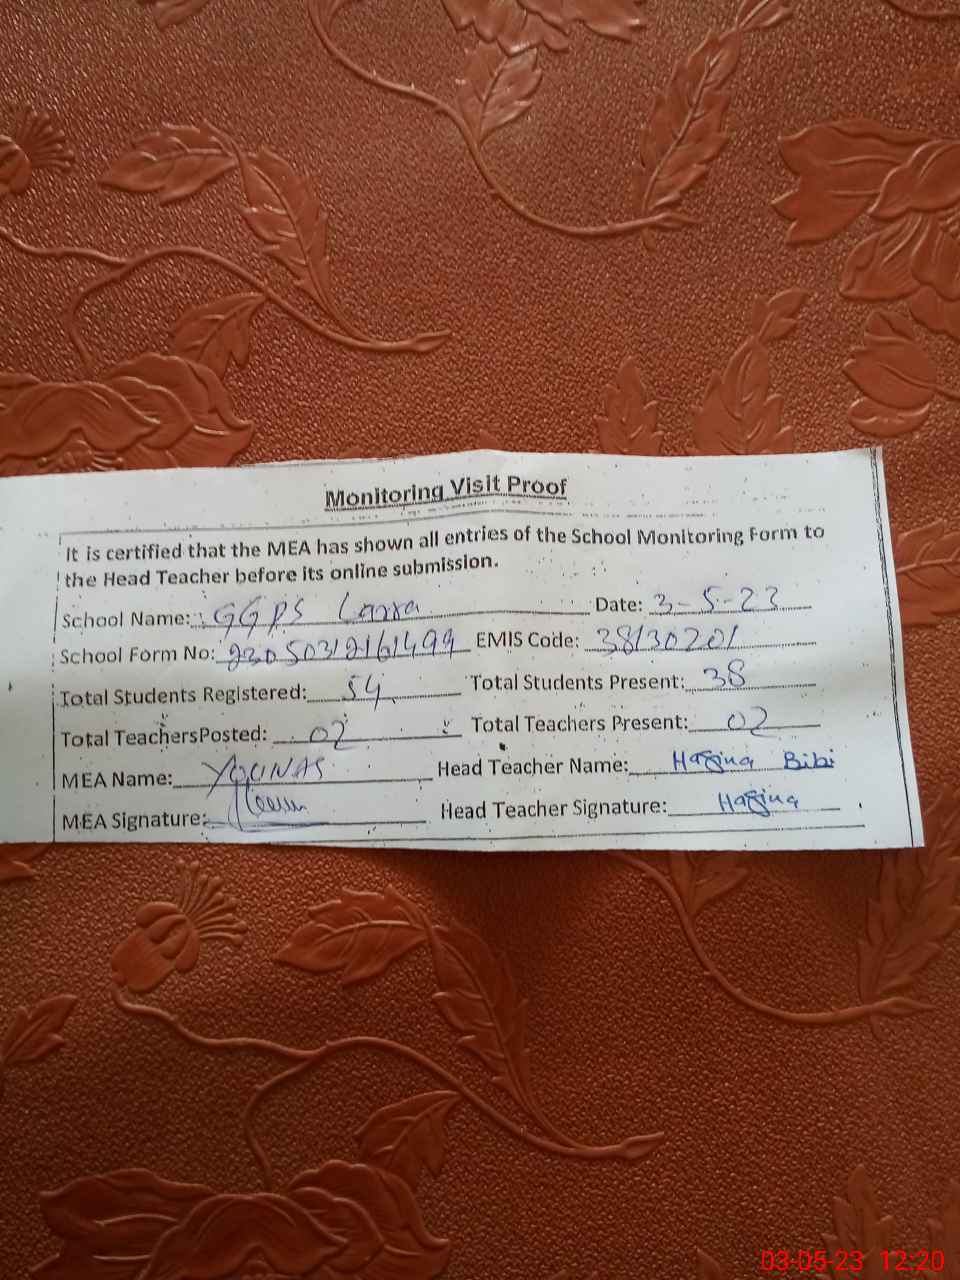 Monitoring Visit Proof
It is certified that the MEA has shown all entries of the School Monitoring Form to
the Head Teacher before its online submission.
School Name: GGPS Lassa Date: 3-5-23
School Form No: 23050312161499 EMIS Code: 38130201
Total Students Registered: 54 Total Students Present: 38
Total TeachersPosted: 02 Total Teachers Present: 02
MEA Name: YOUNAS Head Teacher Name: Bibi
MEA Signature: Head Teacher Signature:
03-05-23 12:20